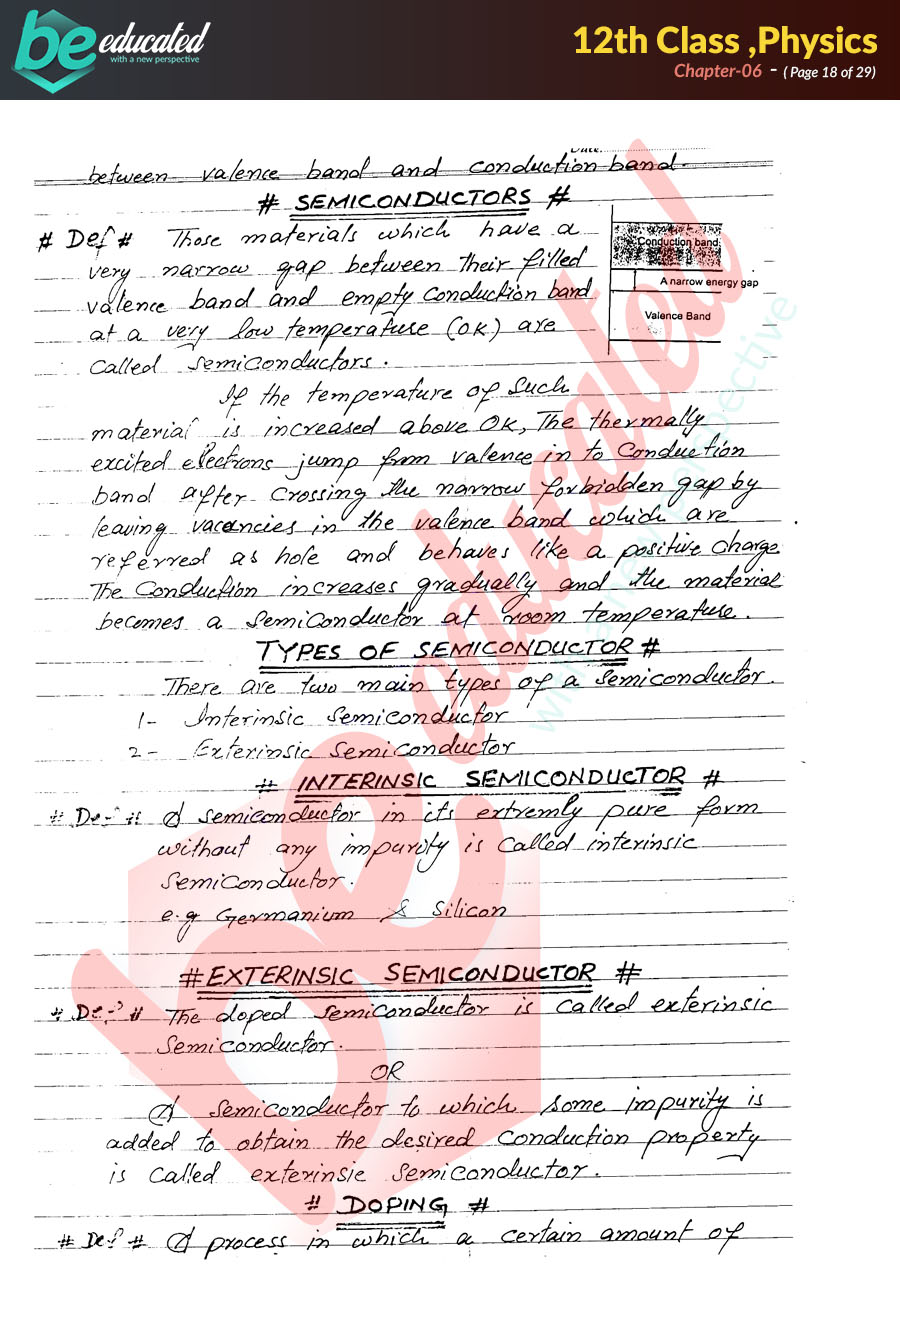 be educated
with a new perspective
12th Class ,Physics
Chapter-06 - ( Page 18 of 29)
Date:
between valence band and conduction band.
# SEMICONDUCTORS #
# Def # Those materials which have a
very narrow gap between their filled
valence band and empty Conduction band
at a very low temperature (0K) are
called semiconductors.
Conduction band
A narrow energy gap
Valence Band
If the temperature of Such
material is increased above 0K, The thermally
excited electrons jump from valence in to Conduction
band after crossing the narrow forbidden gap by
leaving vacancies in the valence band which are
referred as hole and behaves like a positive charge.
The Conduction increases gradually and the material
becomes a semiconductor at room temperature.
TYPES OF SEMICONDUCTOR #
There are two main types of a semiconductor.
1- Interinsic semiconductor
2- Exterinsic semiconductor
# INTERINSIC SEMICONDUCTOR #
# Def # A semiconductor in its extremly pure form
without any impurity is called interinsic
semiconductor.
e.g Germanium & Silicon
# EXTERINSIC SEMICONDUCTOR #
# Def # The doped semiconductor is called exterinsic
semiconductor.
OR
A semiconductor to which some impurity is
added to obtain the desired conduction property
is called exterinsic semiconductor.
# DOPING #
# Def # A process in which a certain amount of
be educated
with a new perspective